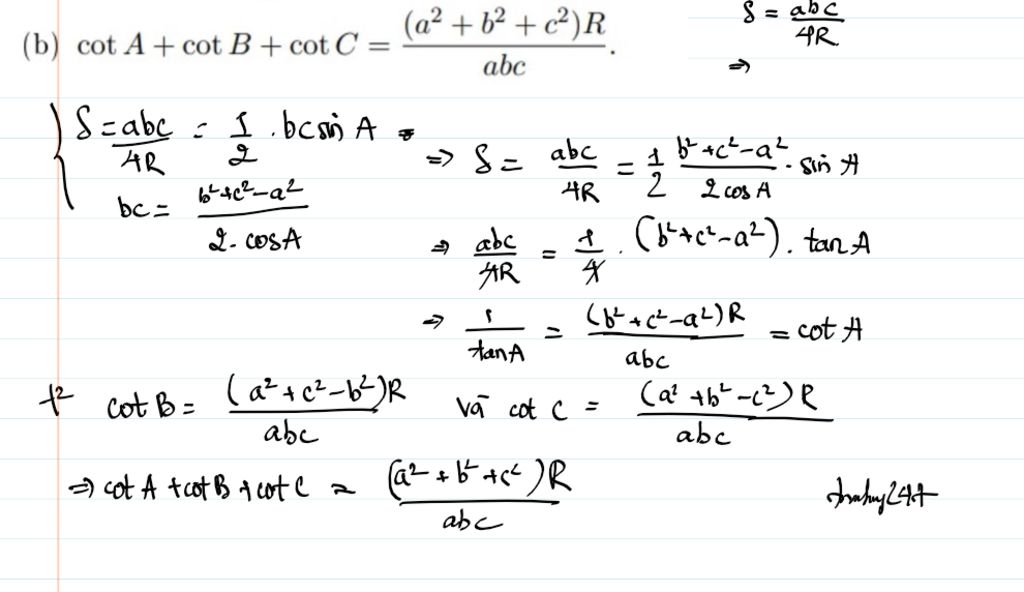 (b) cot A + cot B + cot C = (a² + b² + c²)R / abc.
S = abc / 4R
⇒
{ S = abc / 4R = 1/2 . bc sin A
bc = b² + c² - a² / 2. cos A
⇒ S = abc / 4R = 1/2 b² + c² - a² / 2 cos A . sin A
⇒ abc / 4R = 1/4 . (b² + c² - a²) . tan A
⇒ 1 / tan A = (b² + c² - a²)R / abc = cot A
t² cot B = (a² + c² - b²)R / abc và cot C = (a² + b² - c²)R / abc
⇒ cot A + cot B + cot C = (a² + b² + c²)R / abc